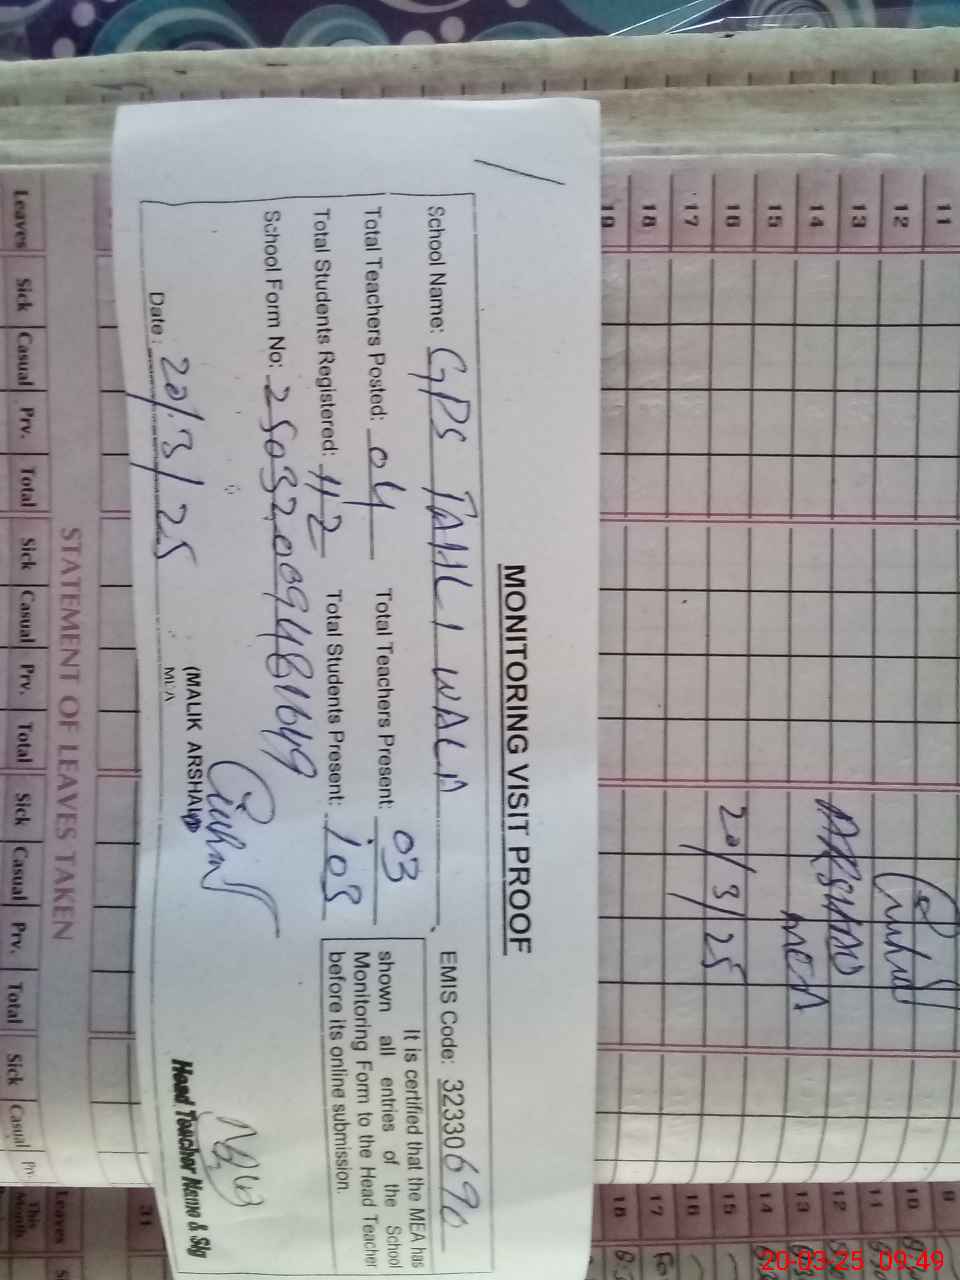 MONITORING VISIT PROOF
School Name: GPS TAHLI WALA EMIS Code: 32330690
Total Teachers Posted: 04 Total Teachers Present: 03
Total Students Registered: 112 Total Students Present: 103
School Form No: 
It is certified that the MEA has
shown all entries of the School
Monitoring Form to the Head Teacher
before its online submission.
Date: 20/3/25
(MALIK ARSHAD)
MEA
Head Teacher Name & Sig
ARSHAD
MEA
20/3/25
11
12
13
14
15
16
17
18
19
STATEMENT OF LEAVES TAKEN
Leaves Sick Casual Prv. Total Sick Casual Prv. Total Sick Casual Prv. Total Sick Casual Prv.
31
Leaves This Month
9
10
11
12
13
14
15
16
17
18
20-03-25 09:49